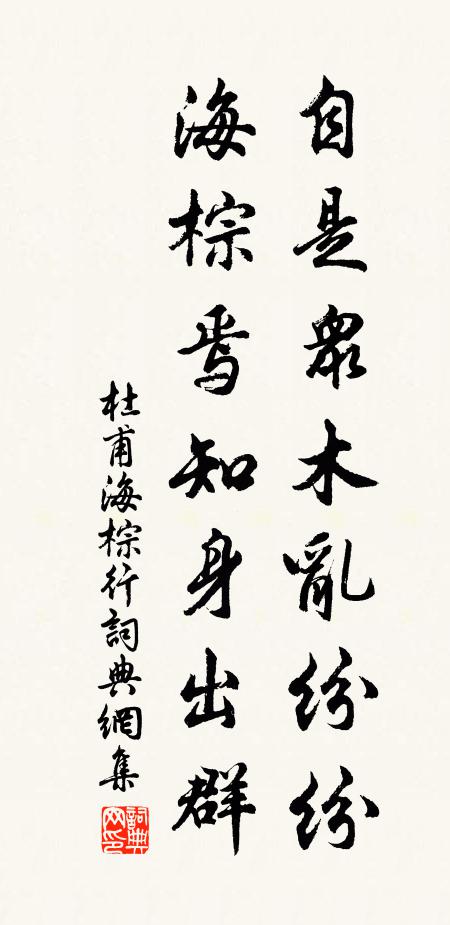 自是眾木亂紛紛
海棕焉知身出群
杜甫海棕行詞典網集
詞典网印